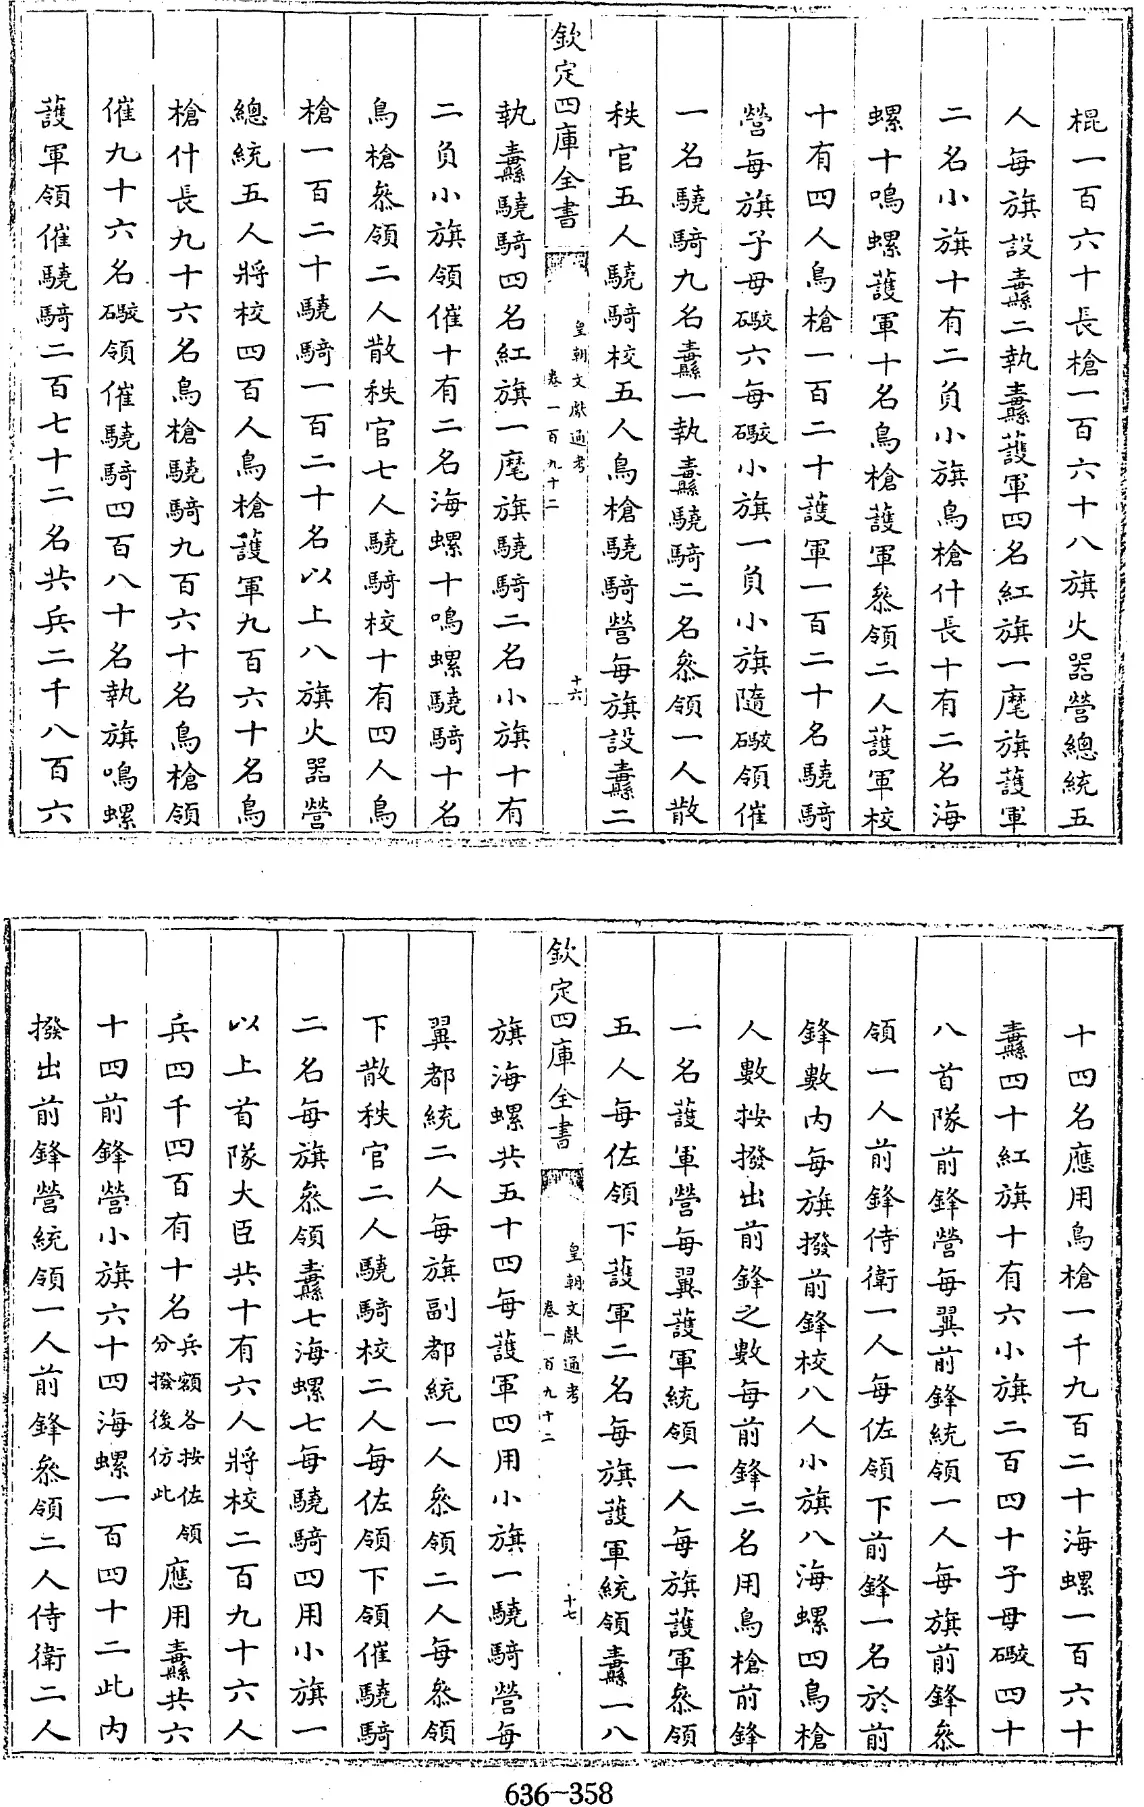 棍一百六十長槍一百六十八旗火器營總統五
人每旗設纛二執纛護軍四名紅旗一麾旗護軍
二名小旗十有二負小旗鳥槍什長十有二名海
螺十鳴螺護軍十名鳥槍護軍叅領二人護軍校
十有四人鳥槍一百二十護軍一百二十名驍騎
營每旗子母礮六每礮小旗一負小旗隨礮領催
一名驍騎九名纛一執纛驍騎二名叅領一人散
秩官五人驍騎校五人鳥槍驍騎營每旗設纛二
欽定四庫全書
皇朝文獻通考
卷一百九十二
十六
執纛驍騎四名紅旗一麾旗驍騎二名小旗十有
二負小旗領催十有二名海螺十鳴螺驍騎十名
鳥槍叅領二人散秩官七人驍騎校十有四人鳥
槍一百二十驍騎一百二十名以上八旗火器營
總統五人將校四百人鳥槍護軍九百六十名鳥
槍什長九十六名鳥槍驍騎九百六十名鳥槍領
催九十六名礮領催驍騎四百八十名執旗鳴螺
護軍領催驍騎二百七十二名共兵二千八百六
十四名應用鳥槍一千九百二十海螺一百六十
纛四十紅旗十有六小旗二百四十子母礮四十
八首隊前鋒營每翼前鋒統領一人每旗前鋒叅
領一人前鋒侍衛一人每佐領下前鋒一名於前
鋒數內每旗撥前鋒校八人小旗八海螺四鳥槍
人數按撥出前鋒之數每前鋒二名用鳥槍前鋒
一名護軍營每翼護軍統領一人每旗護軍叅領
五人每佐領下護軍二名每旗護軍統領纛一八
欽定四庫全書
皇朝文獻通考
卷一百九十二
十七
旗海螺共五十四每護軍四用小旗一驍騎營每
翼都統二人每旗副都統一人叅領二人每叅領
下散秩官二人驍騎校二人每佐領下領催驍騎
二名每旗叅領纛七海螺七每驍騎四用小旗一
以上首隊大臣共十有六人將校二百九十六人
兵四千四百有十名兵額各按佐領分撥後仿此應用纛共六
十四前鋒營小旗六十四海螺一百四十二此內
撥出前鋒營統領一人前鋒叅領二人侍衛二人
636-358